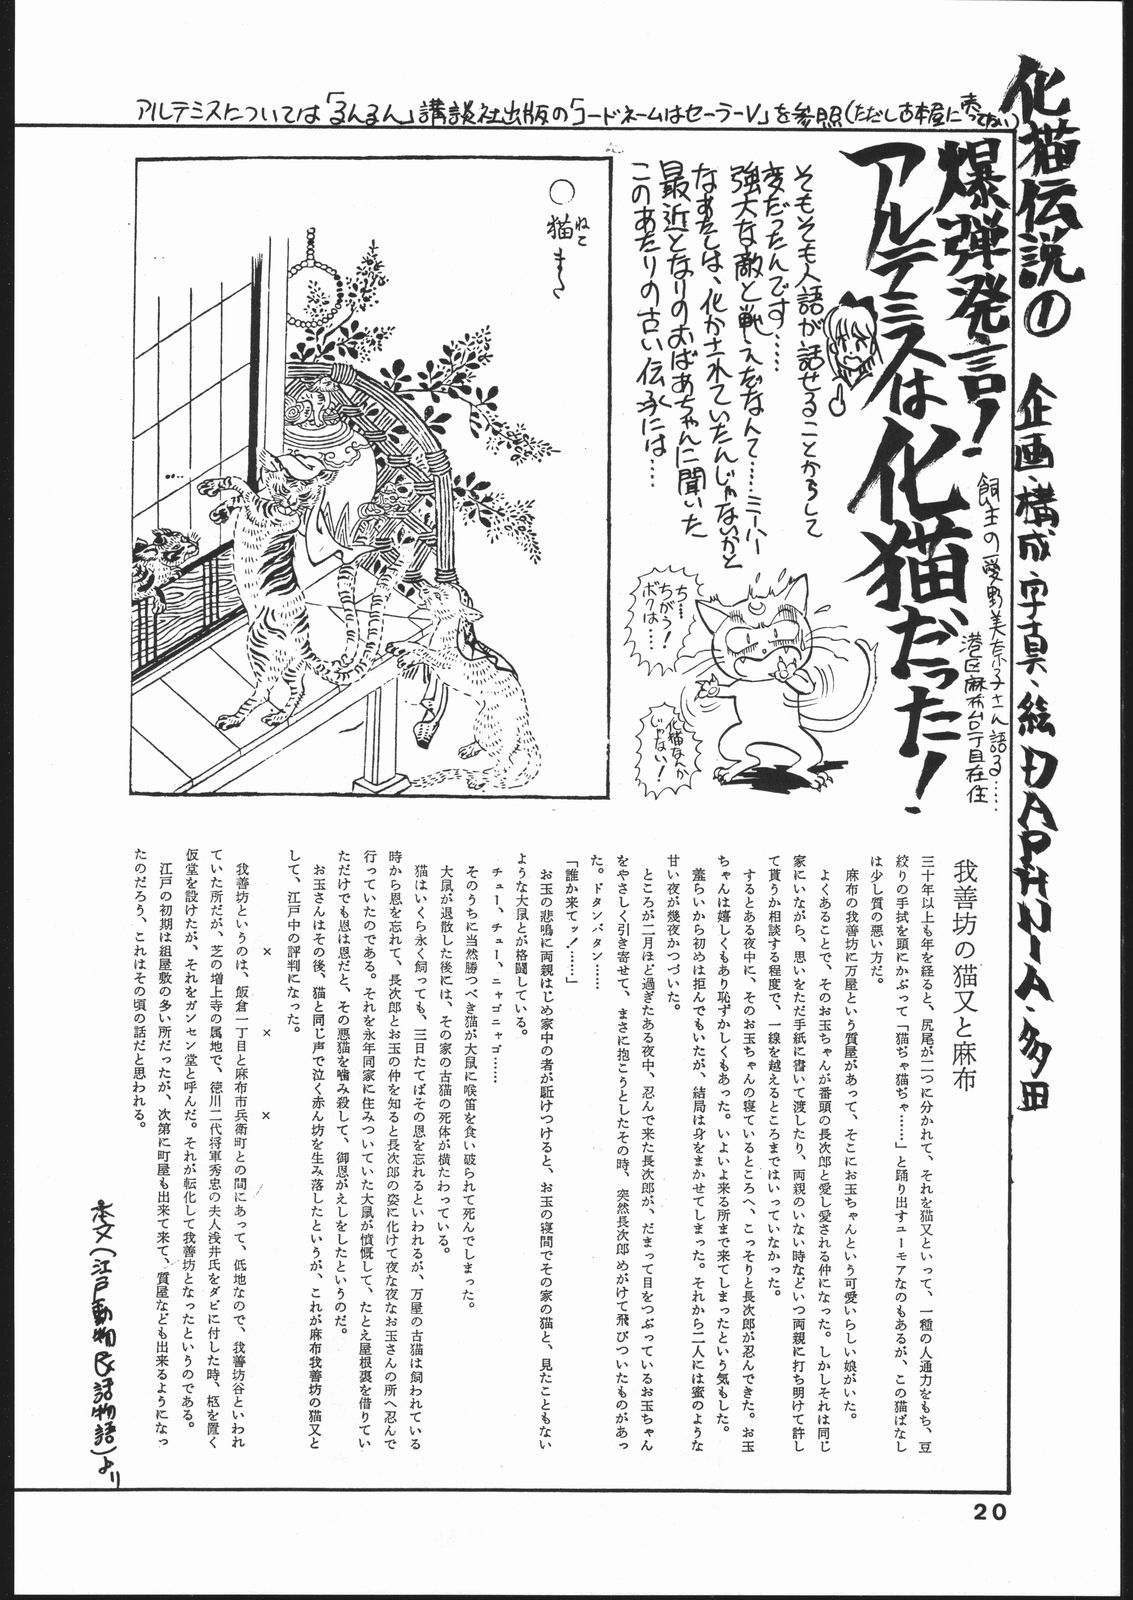 化猫伝説の1 企画・構成・字真・絵 DAPHNIA・多田
アルテミスについては「るんるん」講談社出版の「コードネームはセーラーV」を参照(ただし古本屋に売ってない)
爆弾発言!
アルテミスは化猫だった!
飼主の愛野美奈子さん語る……
港区麻布台一丁目在住
そもそも人語が話せることからして
変だったんです……
強大な敵と戦えだなんて……ミーハー
なあたしは、化かされていたんじゃないかと
最近となりのおばあちゃんに聞いた
このあたりの古い伝承には……
ち…
ちがう!
ボクは…
化猫なんか
じゃない!
○猫また
ねこ
我善坊の猫又と麻布
三十年以上も年を経ると、尻尾が二つに分かれて、それを猫又といって、一種の人通力をもち、豆
絞りの手拭を頭にかぶって「猫ぢゃ猫ぢゃ……」と踊り出すユーモアなのもあるが、この猫ばなし
は少し質の悪い方だ。
麻布の我善坊に万屋という質屋があって、そこにお玉ちゃんという可愛いらしい娘がいた。
よくあることで、そのお玉ちゃんが番頭の長次郎と愛し愛される仲になった。しかしそれは同じ
家にいながら、思いをただ手紙に書いて渡したり、両親のいない時などいつ両親に打ち明けて許し
て貰うか相談する程度で、一線を越えるところまではいっていなかった。
するとある夜中に、そのお玉ちゃんの寝ているところへ、こっそりと長次郎が忍んできた。お玉
ちゃんは嬉しくもあり恥ずかしくもあった。いよいよ来る所まで来てしまったという気もした。
羞らいから初めは拒んでもいたが、結局は身をまかせてしまった。それから二人には蜜のような
甘い夜が幾夜かつづいた。
ところが二月ほど過ぎたある夜中、忍んで来た長次郎が、だまって目をつぶっているお玉ちゃん
をやさしく引き寄せて、まさに抱こうとしたその時、突然長次郎めがけて飛びついたものがあっ
た。ドタンバタン……
「誰か来てッ!……」
お玉の悲鳴に両親はじめ家中の者が駈けつけると、お玉の寝間でその家の猫と、見たこともない
ような大鼠とが格闘している。
チュー、チュー、ニャゴニャゴ……
そのうちに当然勝つべき猫が大鼠に喉笛を食い破られて死んでしまった。
大鼠が退散した後には、その家の古猫の死体が横たわっている。
猫はいくら永く飼っても、三日たてばその恩を忘れるといわれるが、万屋の古猫は飼われている
時から恩を忘れて、長次郎とお玉の仲を知ると長次郎の姿に化けて夜な夜なお玉さんの所へ忍んで
行っていたのである。それを永年同家に住みついていた大鼠が憤慨して、たとえ屋根裏を借りてい
ただけでも恩は恩だと、その悪猫を噛み殺して、御恩がえしをしたというのだ。
お玉さんはその後、猫と同じ声で泣く赤ん坊を生み落したというが、これが麻布我善坊の猫又と
して、江戸中の評判になった。
× × ×
我善坊というのは、飯倉一丁目と麻布市兵衛町との間にあって、低地なので、我善坊谷といわれ
ていた所だが、芝の増上寺の属地で、徳川二代将軍秀忠の夫人浅井氏をダビに付した時、柩を置く
仮堂を設けたが、それをガンセン堂と呼んだ。それが転化して我善坊となったというのである。
江戸の初期は組屋敷の多い所だったが、次第に町屋も出来て来て、質屋なども出来るようになっ
たのだろう、これはその頃の話だと思われる。
本文(江戸動物民話物語)より
20